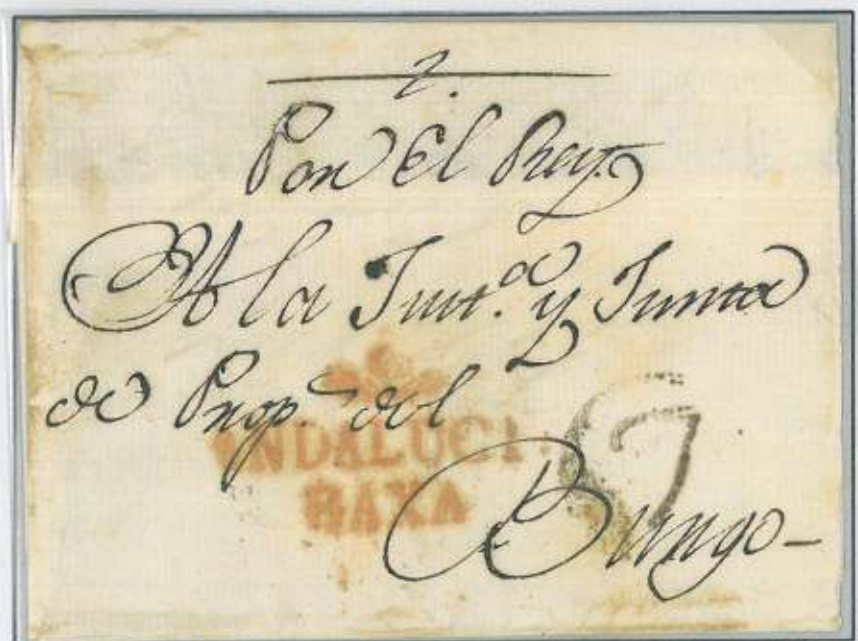 2.
Por El Rey.
A la Just.ª y Junta
de Prop.s del
ANDALUCI
BAXA
Burgo-